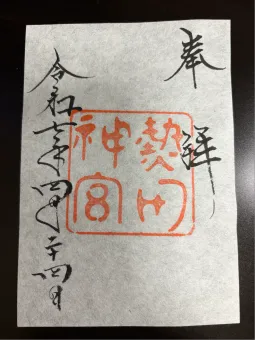 奉拝
熱田
神宮
令和七年四月二十四日